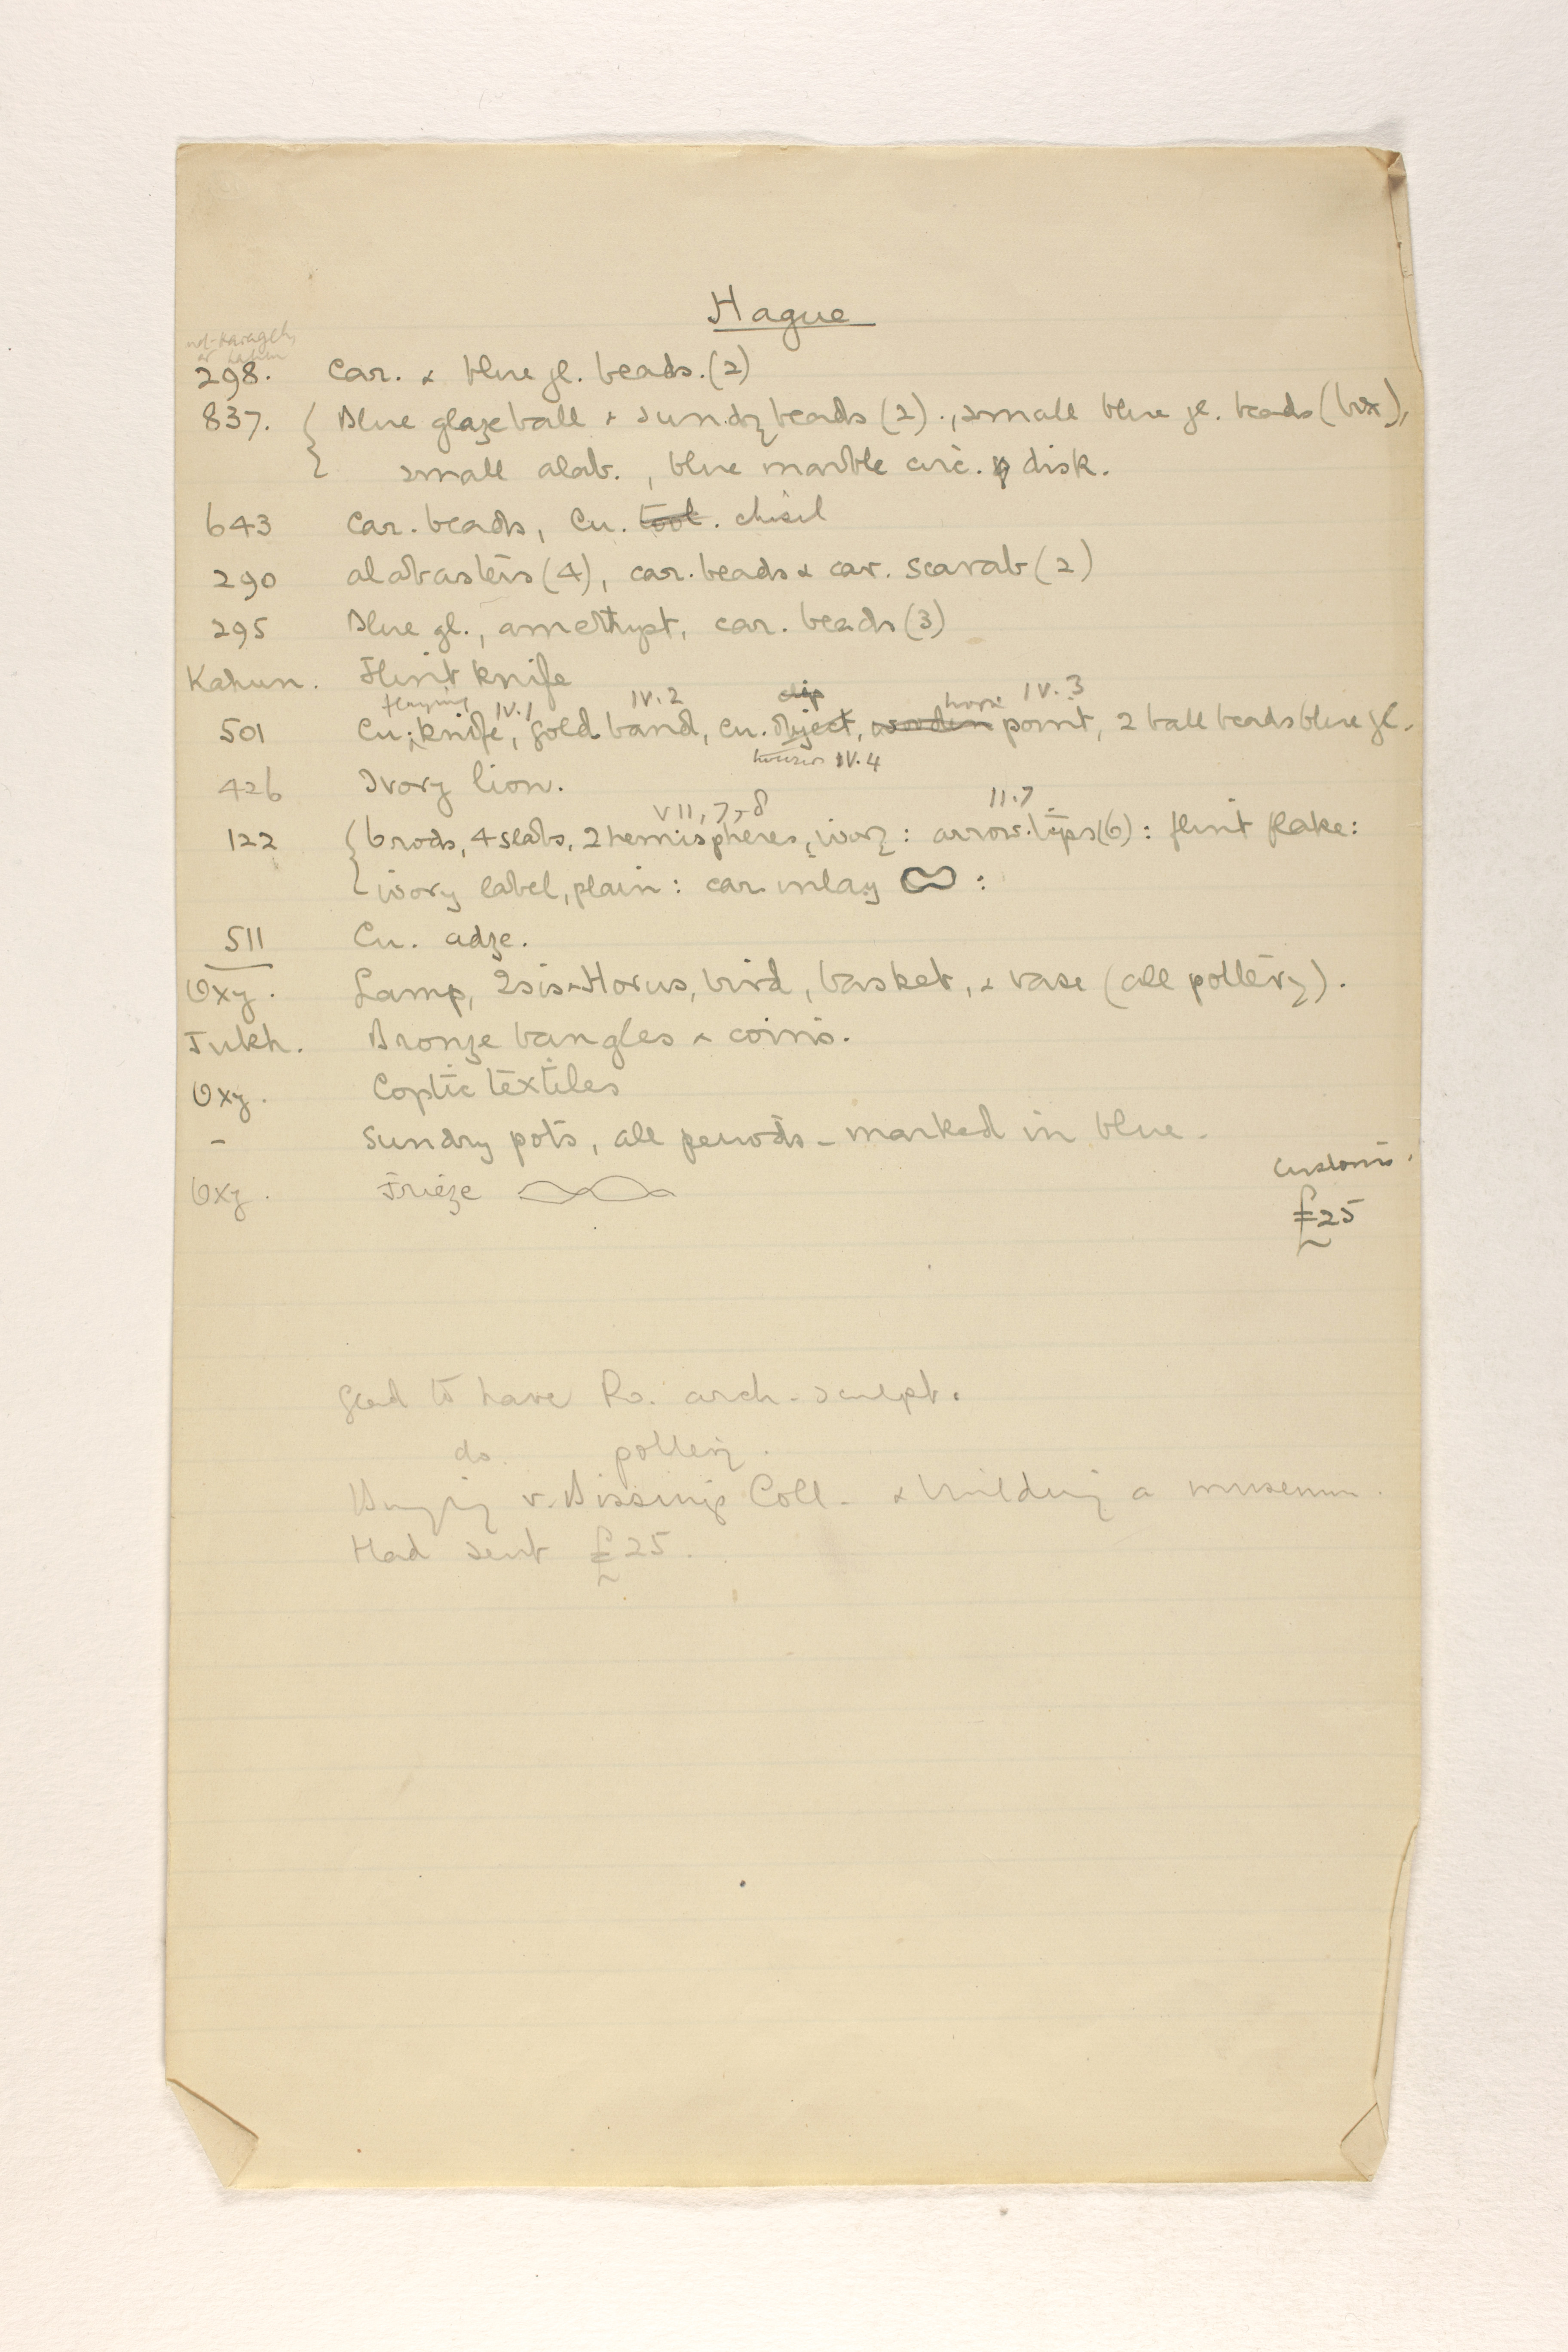 Hague
not Harageh,
or Kahun
298. Car. & blue gl. beads. (2)
837. { Blue glaze ball & sundry beads (2)., small blue gl. beads (box),
small alab., blue marble circ. disk.
643 Car. beads, Cu. tool. chisel
290 alabasters (4), car. beads & car. scarab (2)
295 Blue gl., amethyst, car. beads (3)
Kahun. Flint knife
flaying IV.1 IV.2 clip horn IV.3
501 Cu. knife, gold band, Cu. object, wooden point, 2 ball beads blue gl.
tweezers IV.4
426 Ivory lion.
VII, 7, 8 II.7
122 { 6 rods, 4 slabs, 2 hemispheres, ivory: arrow-tips (6): flint flake:
ivory label, plain: car. inlay :
511 Cu. adze.
Oxy. Lamp, Isis & Horus, bird, basket, & vase (all pottery).
Tukh. Bronze bangles & coins.
Oxy. Coptic textiles
- Sundry pots, all periods - marked in blue -
Customs.
Oxy. Frieze
£25
Glad to have Ro. arch. sculpt.
do. pottery.
Buying v. Bissing's Coll. & building a museum.
Had sent £25.